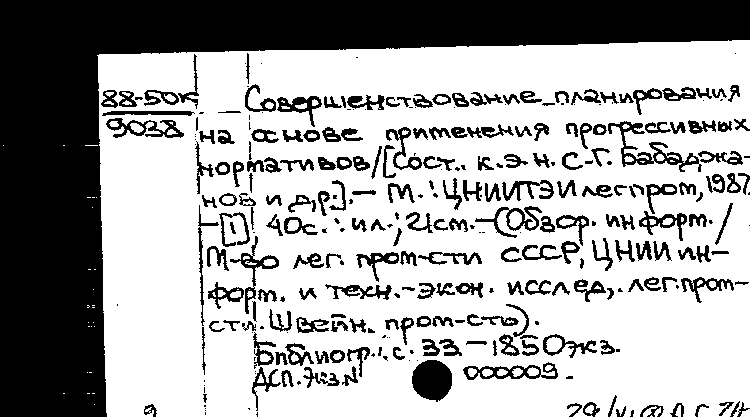 88-50к
9038
Совершенствование планирования
на основе применения прогрессивных
нормативов/[Сост. к.э.н. С.Г. Бабаджа-
нов и др.].— М.: ЦНИИТЭИлегпром, 1987
—[1], 40с.: ил.; 21см.—(Обзор. информ./
М-во лег. пром-сти СССР, ЦНИИ ин-
форм. и техн.-экон. исслед. лег.пром-
сти. Швейн. пром-сть).
Библиогр.: с. 33 — 1850экз.
ДСП. Экз.N 000009.